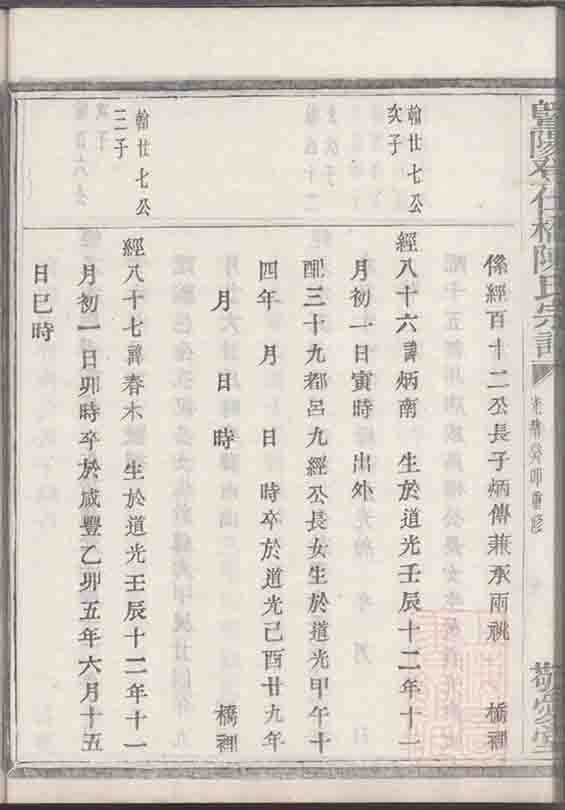 暨陽登仕橋陳氏宗譜
光緒癸卯重修
敬愛堂
係經百十二公長子炳傳兼承兩祧
橋裡
翰廿七公
次子
經八十六諱炳南 生於道光壬辰十二年十一
月初一日寅時出外
配三十九都呂九經公長女生於道光甲午十
四年 月 日 時卒於道光己酉廿九年
月 日 時
橋裡
翰廿七公
三子
經八十七諱春木 生於道光壬辰十二年十一
月初一日卯時卒於咸豐乙卯五年六月十五
日巳時